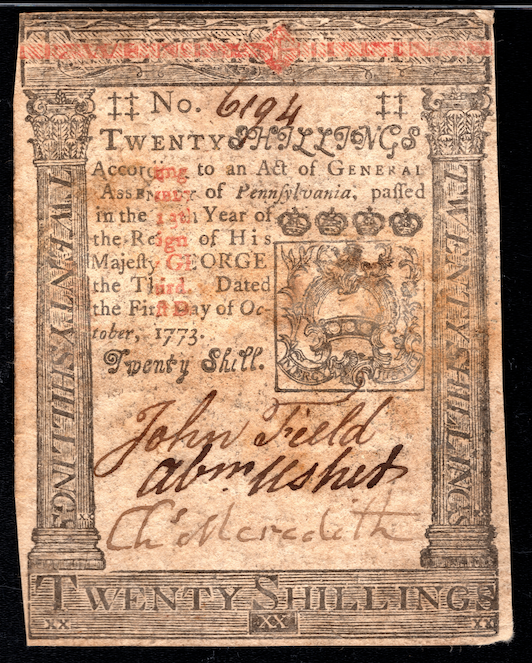 TWENTY SHILLINGS
‡‡ No. 6194 ‡‡
TWENTY SHILLINGS
According to an Act of GENERAL
ASSEMBLY of Pennſylvania, paſſed
in the 13th Year of
the Reign of His
Majeſty GEORGE
the Third. Dated
the Firſt Day of Oc-
tober, 1773.
Twenty Shill.
TWENTY SHILLINGS
TWENTY SHILLINGS
John Field
Abm Usher
Chs Meredith
TWENTY SHILLINGS
XX XX XX